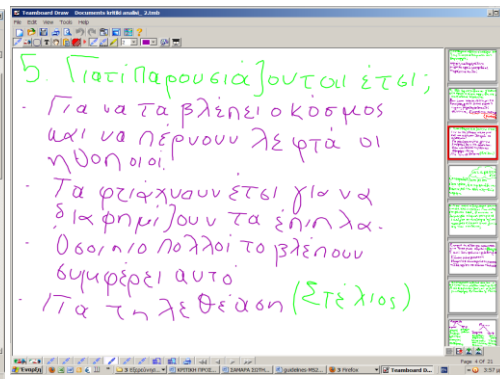 Teamboard Draw Documents kritiki analiki_ 2.tmb
File Edit View Tools Help
5 Γιατί Παρουσιάζουται έτσι;
- Για να τα βλέπει ο κόσμος
και να πέρνουν λεφτά οι
ηθοποιοι.
- Τα φτιάχνουν έτσι για να
διαφημίζουν τα έπιπλα.
- Όσοι πιο πολλοί το βλέπουν
συμφέρει αυτό
- Για τηλεθέαση (Στέλιος)
Page 4 OF 21
Έναρξη
3 Firefox
Teamboard D...
3:57